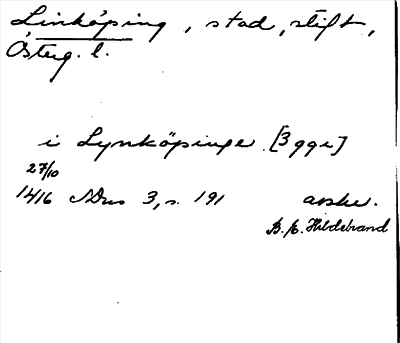 Linköping, stad, stift,
Österg. l.
i Lynköpinge [3 ggr]
27/10
1416 SDns 3, s. 191 avskr.
B. E. Hildebrand